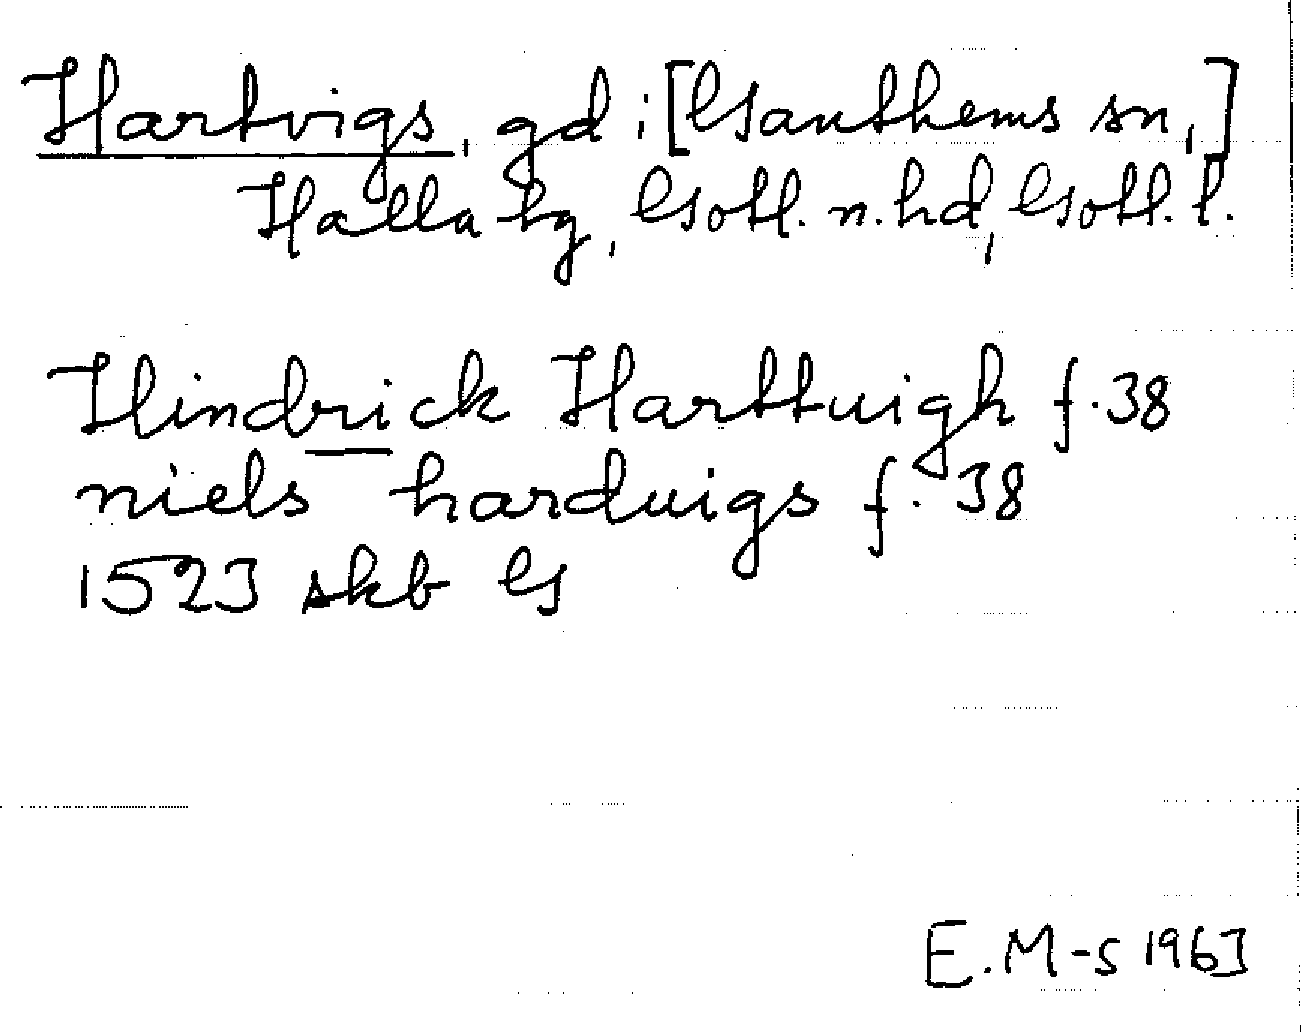 Hartvigs, gd i [Ganthems sn,]
Halla tg, Gotl. n. hd, Gotl. l.
Hindrick Harttuigh f. 38
niels harduigs f. 38
1523 skb G
E. M-s 1963